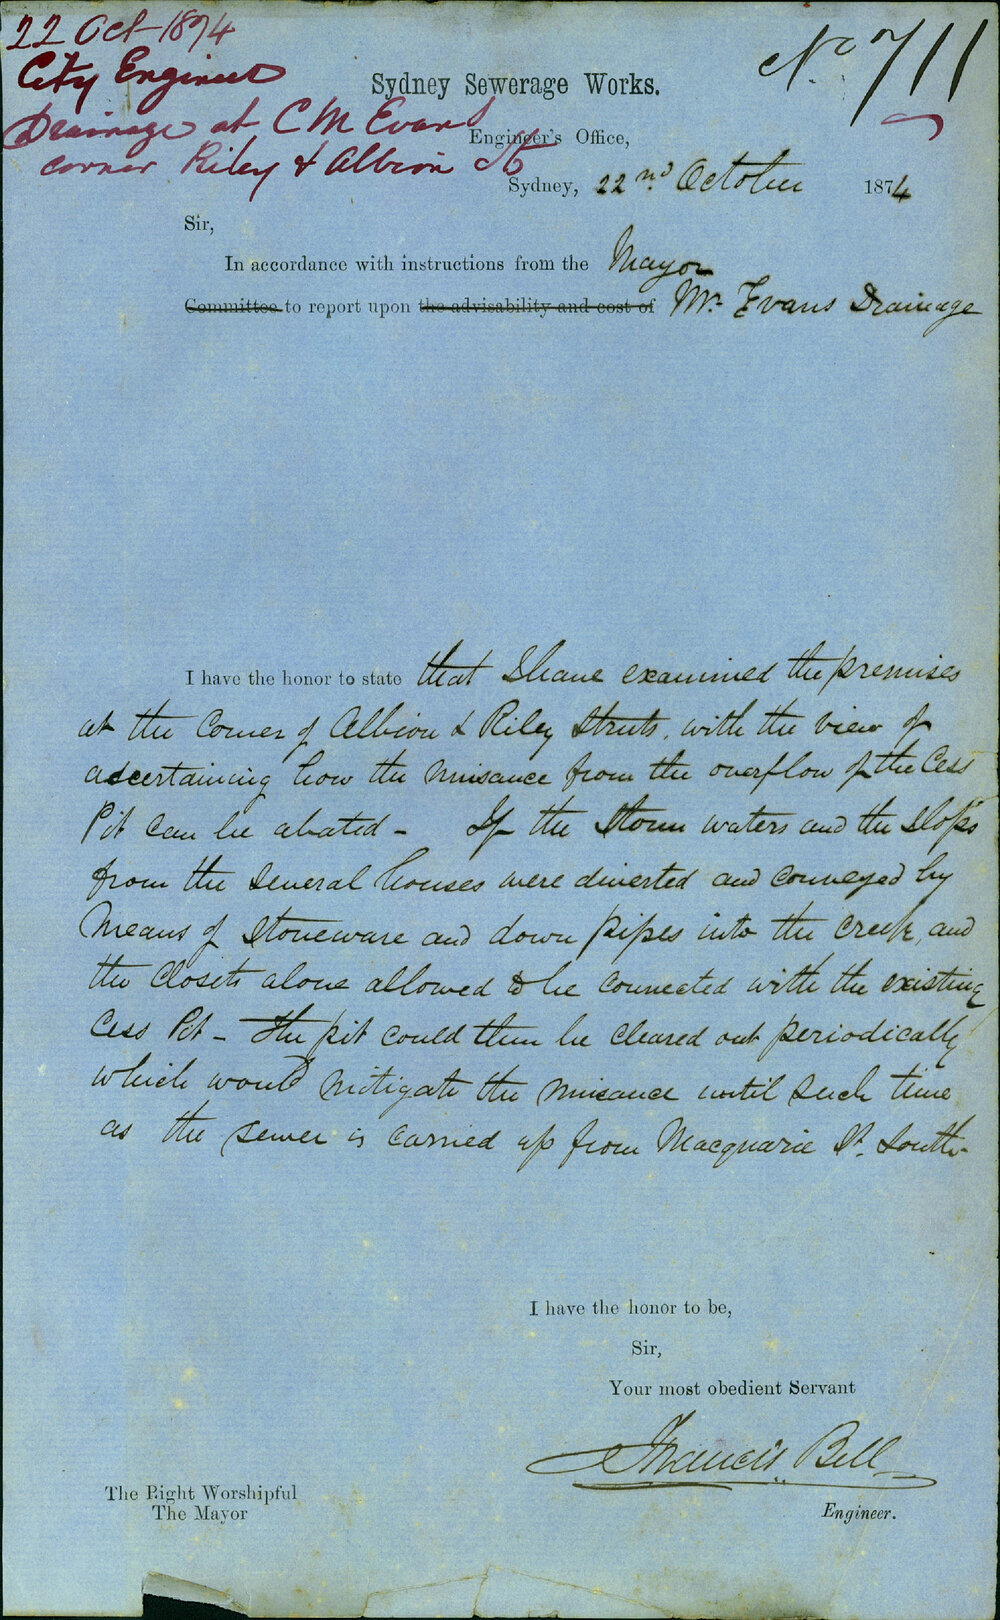 22 Oct 1874
City Engineer
Drainage at C M Evans
corner Riley & Albion St
No 711
Sydney Sewerage Works.
Engineer's Office,
Sydney, 22nd October 1874
Sir,
In accordance with instructions from the Mayor
Committee to report upon the advisability and cost of Mr. Evans Drainage
I have the honor to state that I have examined the premises
at the Corner of Albion & Riley Streets, with the view of
ascertaining how the nuisance from the overflow of the Cess
Pit can be abated - If the Storm waters and the Slops
from the several houses were diverted and conveyed by
Means of Stoneware and down pipes into the creek, and
the Closets alone allowed to be connected with the existing
Cess Pit - The pit could then be cleared out periodically
which would mitigate the nuisance until such time
as the sewer is carried up from Macquarie St. South -
I have the honor to be,
Sir,
Your most obedient Servant
Francis Bell
Engineer.
The Right Worshipful
The Mayor